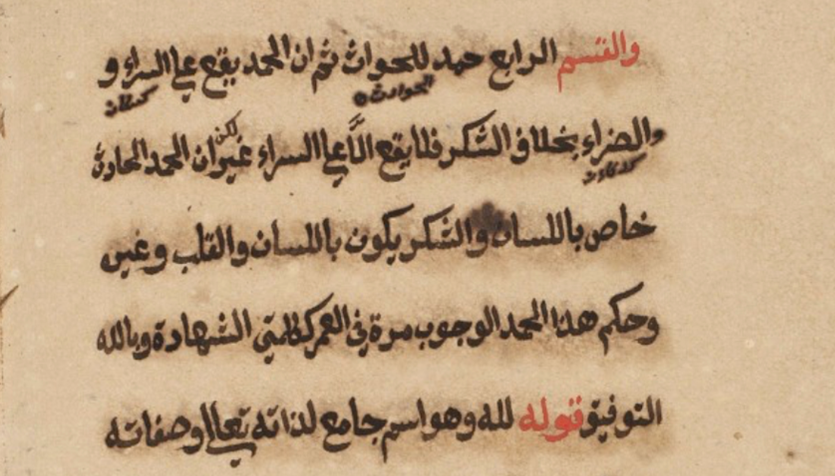 والقسم الرابع حمد للحواث ثم ان الحمد يقع على السراء و
الحوادث
والضراء بخلاف الشكر فلا يقع الّا على السراء غير ان الحمد الحادث
لكن
خاص باللسان والشكر يكون باللسان والقلب وغير
وحكم هذا الحمد الوجوب مرة في العمر ككلمتي الشهادة وبالله
التوفيق قوله لله وهو اسم جامع لذاته تعالى وصفاته